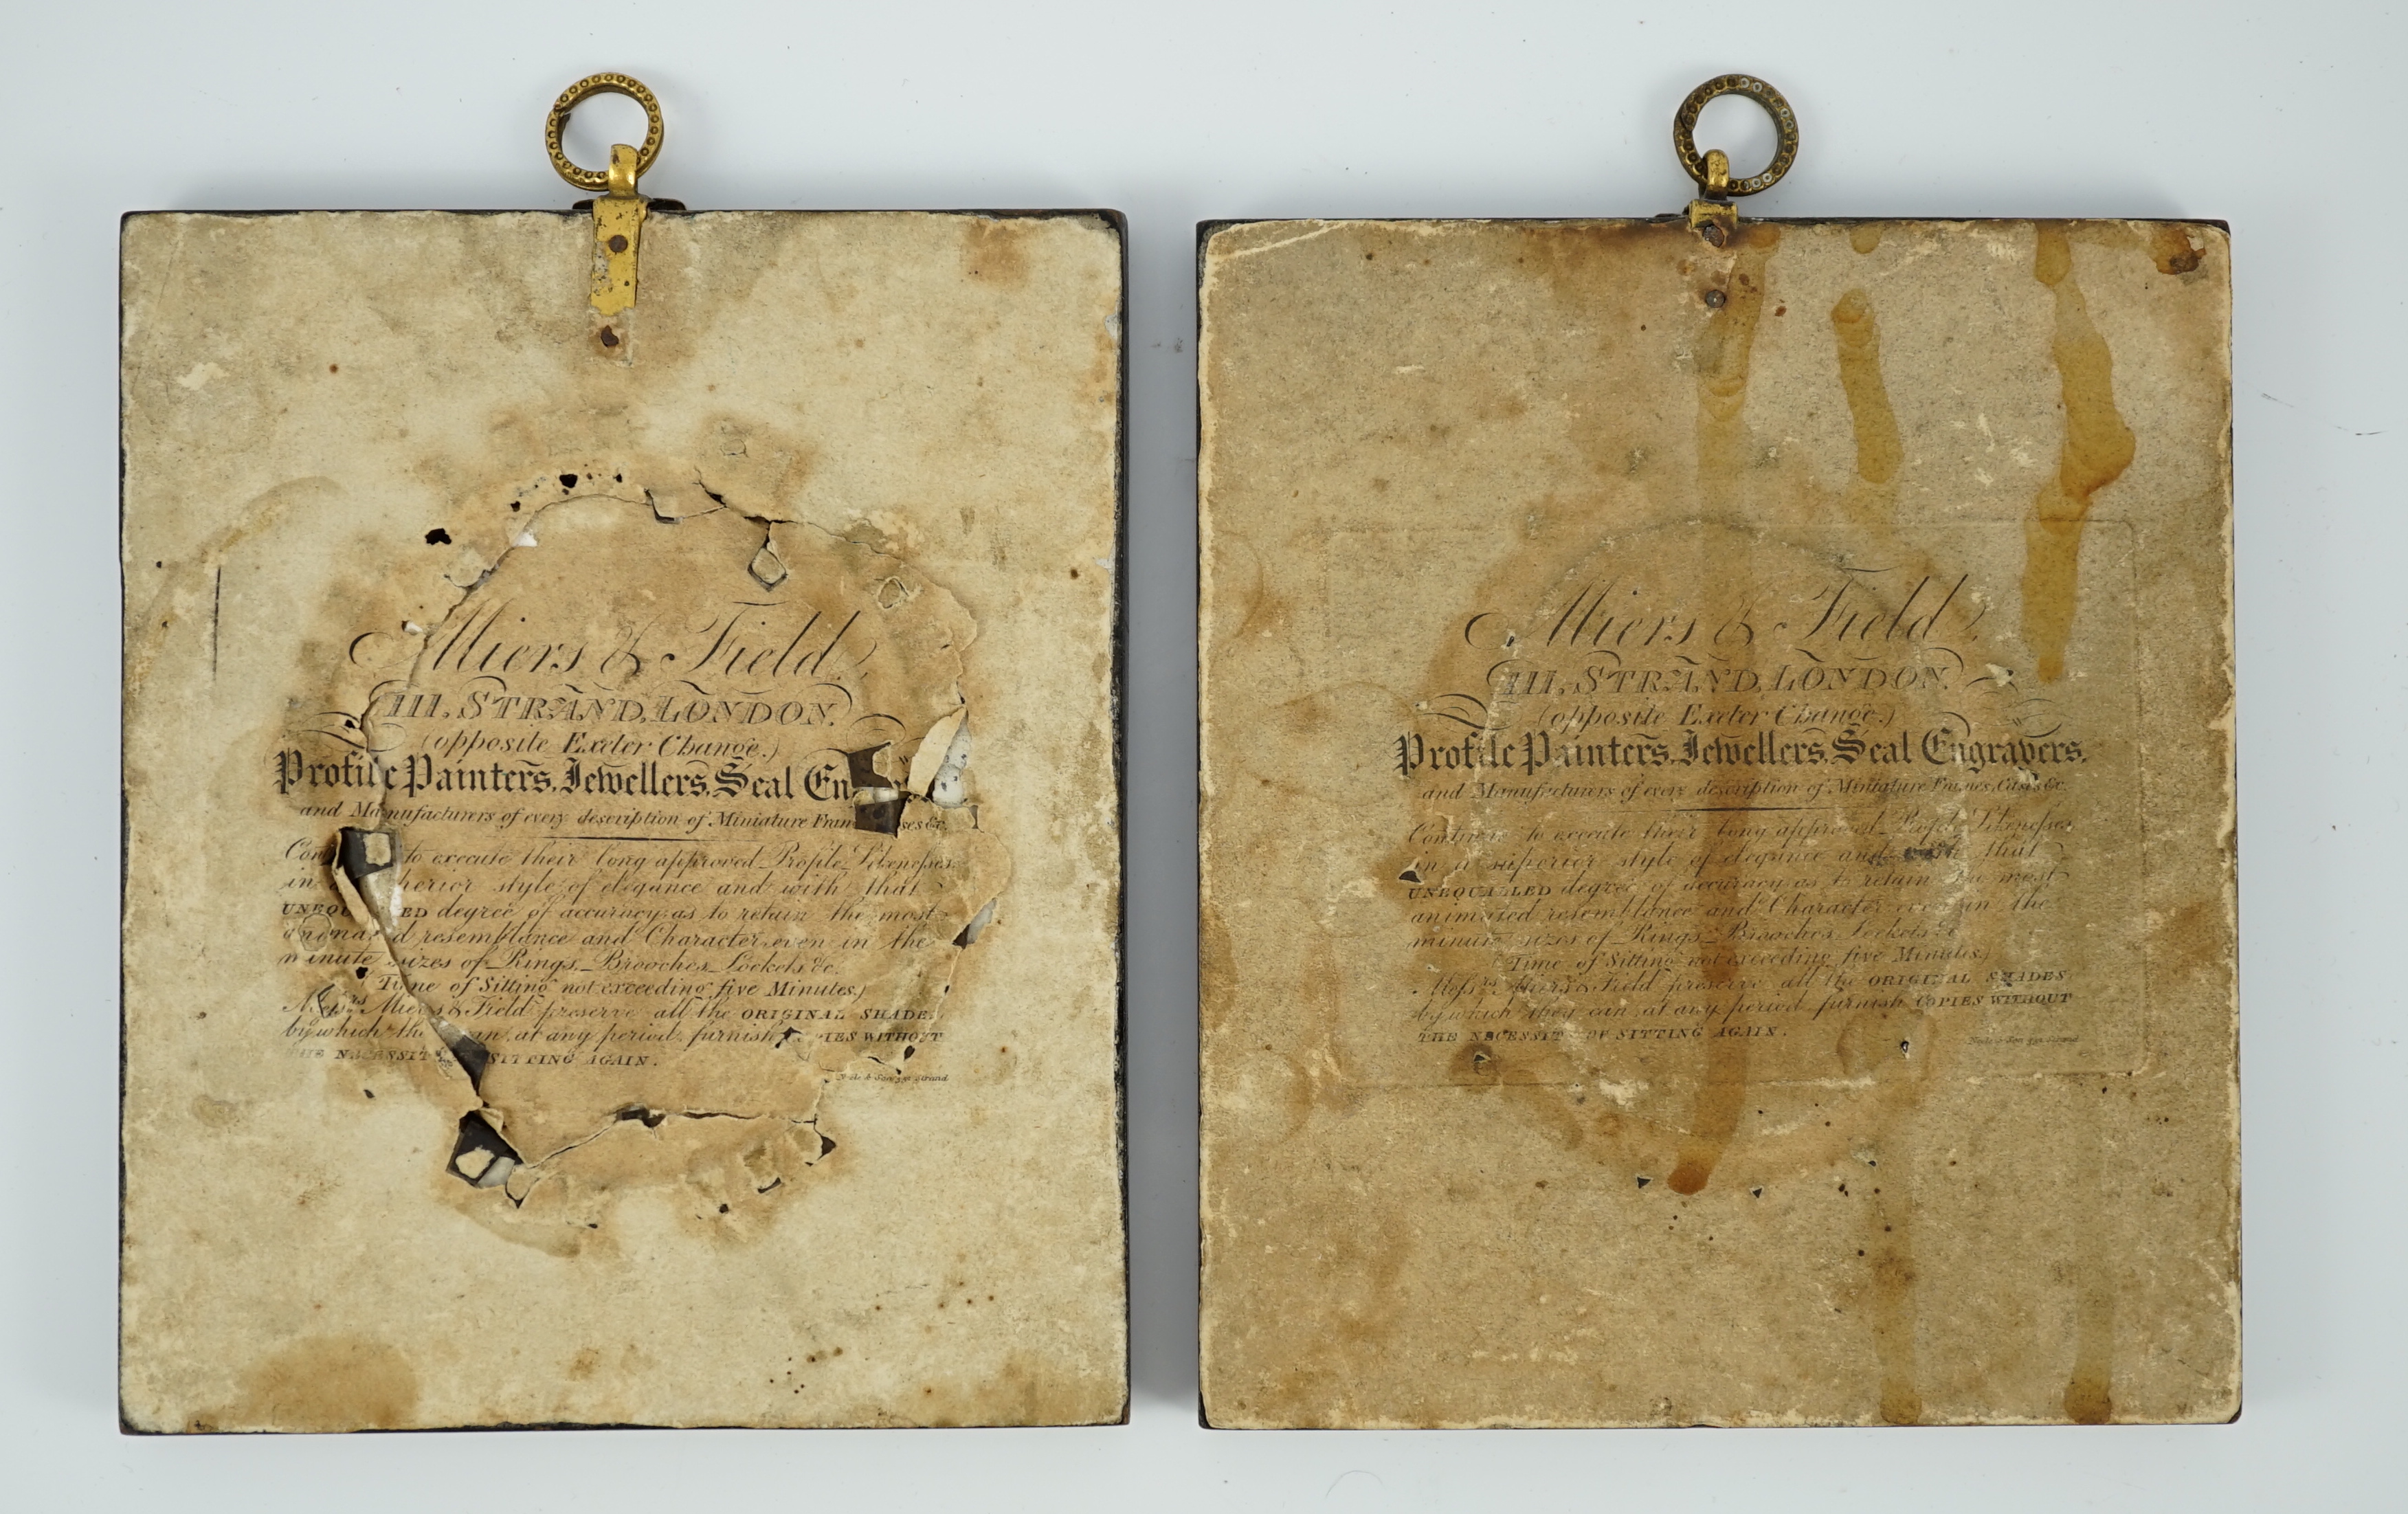 Miers & Field,
111, STRAND, LONDON.
(opposite Exeter Change.)
Profile Painters, Jewellers, Seal En
and Manufacturers of every description of Miniature Fram ses &c.
Con to execute their long approved Profile Likenesses,
in a perior style of elegance and with that
UNEQU ED degree of accuracy as to retain the most
animated resemblance and Character even in the
minute sizes of Rings, Brooches, Lockets &c.
(Time of Sitting not exceeding five Minutes.)
Messrs Miers & Field preserve all the ORIGINAL SHADES,
by which the can at any period furnish PIES WITHOUT
THE NECESSIT SITTING AGAIN.
Neele & Son 352 Strand
Miers & Field,
111, STRAND, LONDON.
(opposite Exeter Change.)
Profile Painters, Jewellers, Seal Engravers,
and Manufacturers of every description of Miniature Frames, Cases &c.
Continue to execute their long approved Profile Likenesses,
in a superior style of elegance and with that
UNEQUALLED degree of accuracy as to retain the most
animated resemblance and Character even in the
minute sizes of Rings, Brooches, Lockets &c
(Time of Sitting not exceeding five Minutes.)
Messrs Miers & Field preserve all the ORIGINAL SHADES,
by which they can at any period furnish COPIES WITHOUT
THE NECESSITY OF SITTING AGAIN.
Neele & Son 352 Strand